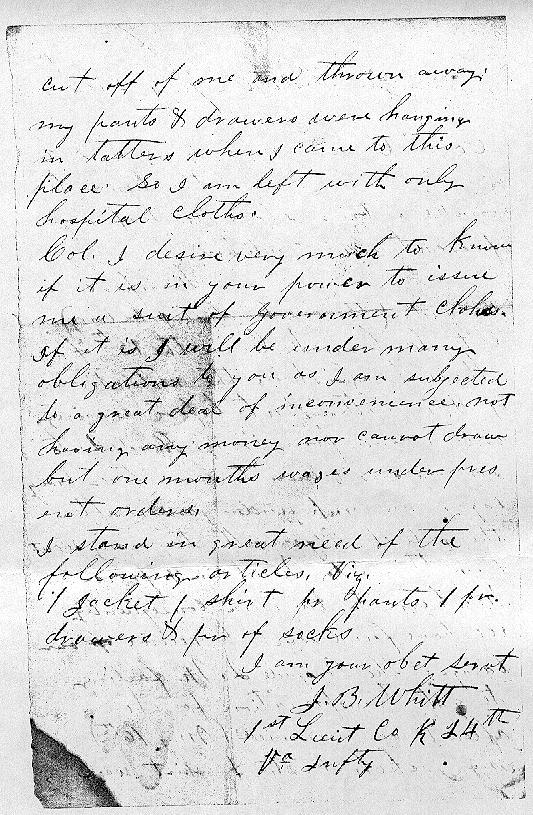 cut off of me and thrown away.
my pants & drawers were hanging
in tatters when I came to this
place. So I am left with only
hospital cloths.
Col. I desire very much to know
if it is in your power to issue
me a suit of Government clothes.
If it is I will be under many
obligations to you as I am subjected
to a great deal of inconvenience, not
having any money nor cannot draw
but one months wages under pres
ent orders.
I stand in great need of the
following articles, Viz.
1 Jacket 1 shirt pr pants 1 pr.
drawers & pr of socks
I am your obet servt
J. B. Whitt
1st Lieut Co K 24th
Va Infty